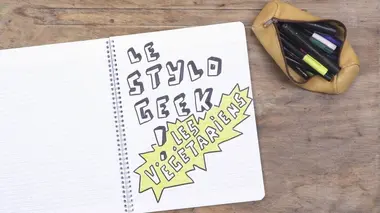 LE
STYLO
GEEK
LES
VÉGÉTARIENS